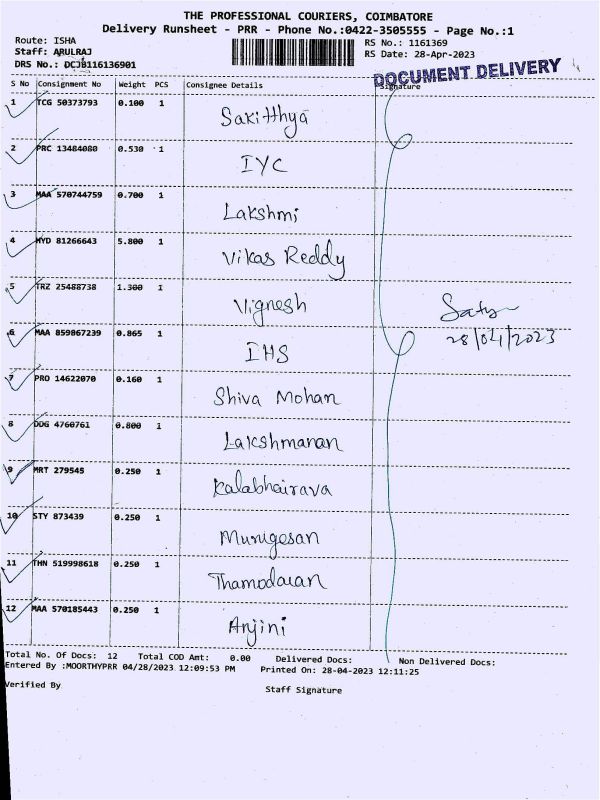 THE PROFESSIONAL COURIERS, COIMBATORE
Delivery Runsheet - PRR - Phone No.:0422-3505555 - Page No.:1
Route: ISHA
Staff: ARULRAJ
DRS No.: DCJB116136901
RS No.: 1161369
RS Date: 28-Apr-2023
DOCUMENT DELIVERY
S No Consignment No Weight PCS Consignee Details Signature
1 TCG 50373793 0.100 1 Sakitthya
2 PRC 13484080 0.530 1 IYC
3 MAA 570744759 0.700 1 Lakshmi
4 HYD 81266643 5.800 1 Vikas Reddy
5 TRZ 25488738 1.300 1 Vignesh
Satya
28/04/2023
6 MAA 859867239 0.865 1 IHS
7 PRO 14622070 0.160 1 Shiva Mohan
8 DDG 4760761 0.800 1 Lakshmanan
9 MRT 279545 0.250 1 Kalabhairava
10 STY 873439 0.250 1 Murugesan
11 THN 519998618 0.250 1 Thamodaran
12 MAA 570185443 0.250 1 Anjini
Total No. Of Docs: 12 Total COD Amt: 0.00 Delivered Docs: Non Delivered Docs:
Entered By :MOORTHYPRR 04/28/2023 12:09:53 PM Printed On: 28-04-2023 12:11:25
Verified By Staff Signature